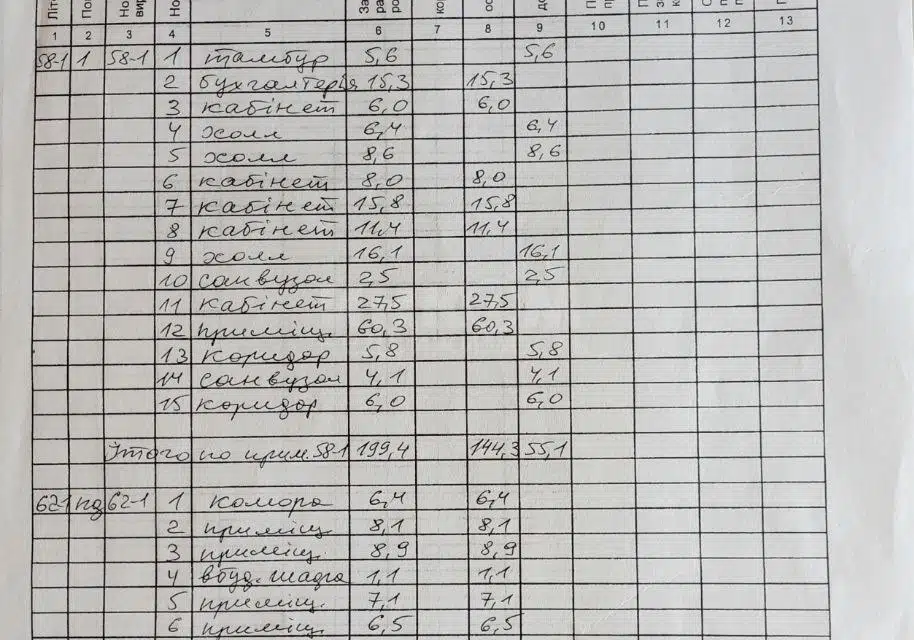 1 2 3 4 5 6 7 8 9 10 11 12 13
58-1 1 58-1 1 тамбур 5,6 5,6
2 бухгалтерія 15,3 15,3
3 кабінет 6,0 6,0
4 холл 6,4 6,4
5 холл 8,6 8,6
6 кабінет 8,0 8,0
7 кабінет 15,8 15,8
8 кабінет 11,4 11,4
9 холл 16,1 16,1
10 санвузол 2,5 2,5
11 кабінет 27,5 27,5
12 приміщ. 60,3 60,3
13 коридор 5,8 5,8
14 санвузол 4,1 4,1
15 коридор 6,0 6,0
Итого по прим. 58-1 199,4 144,3 55,1
62-1 пд 62-1 1 комора 6,4 6,4
2 приміщ. 8,1 8,1
3 приміщ. 8,9 8,9
4 вбуд. шафа 1,1 1,1
5 приміщ. 7,1 7,1
6 приміщ. 6,5 6,5